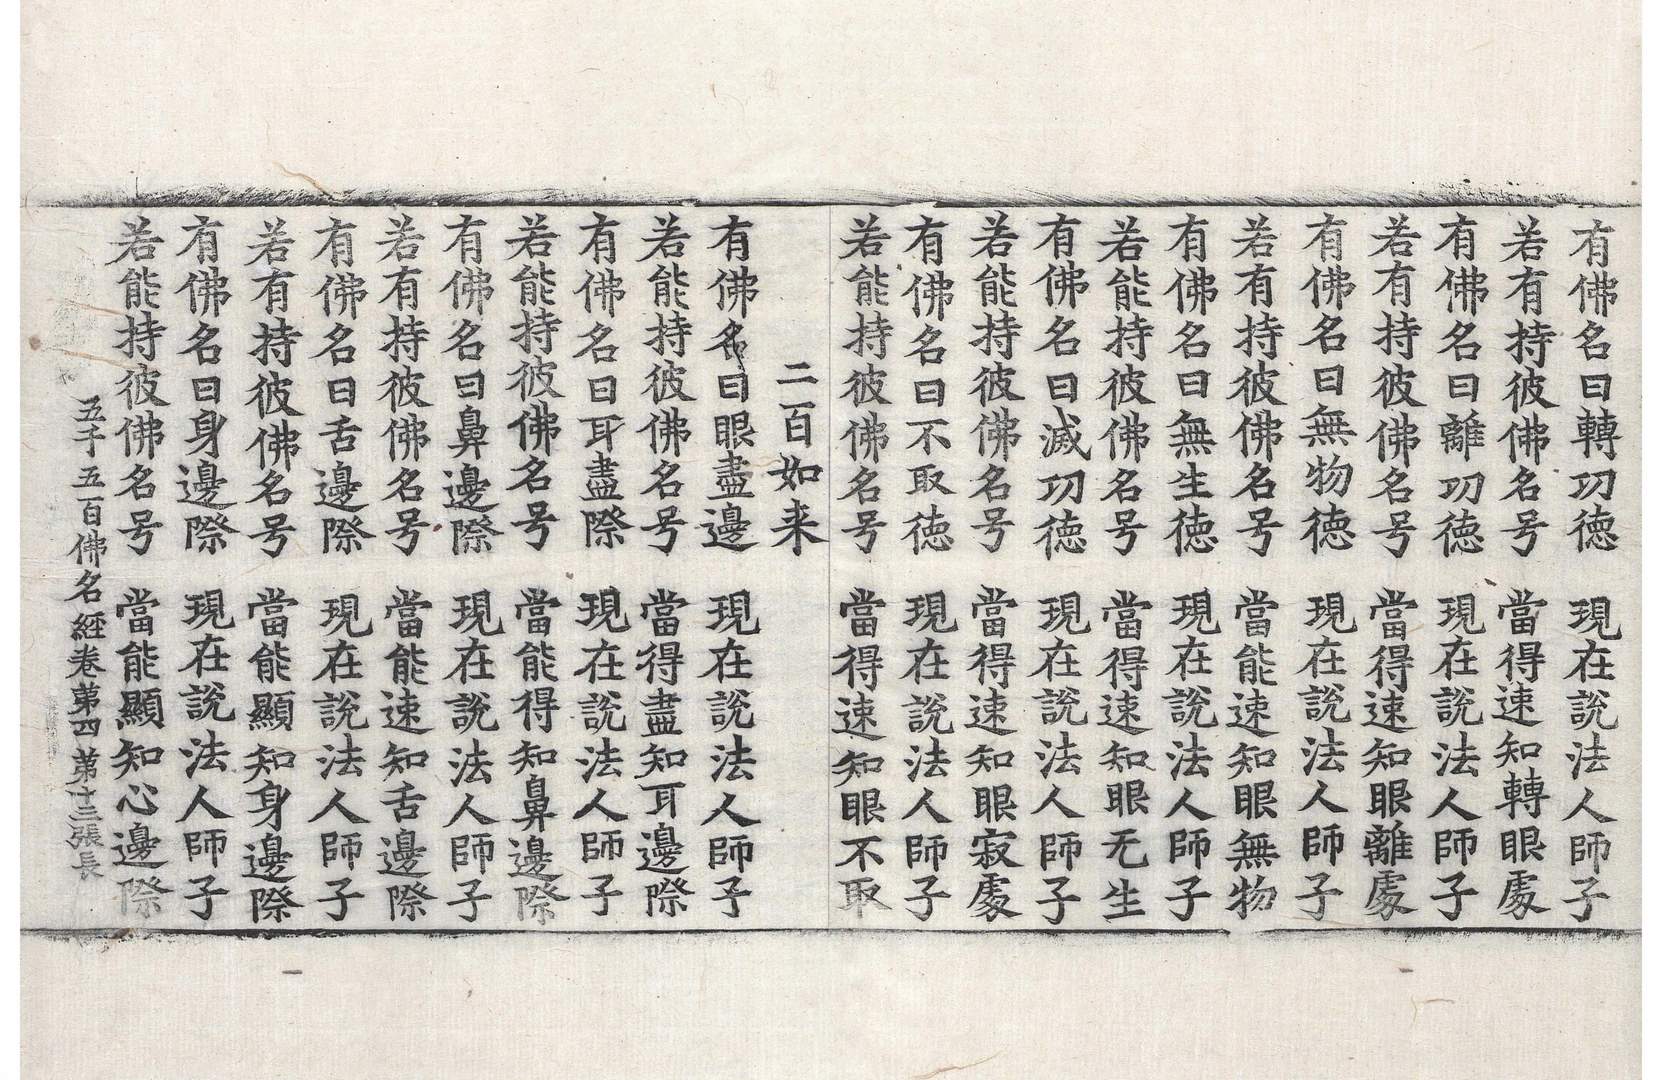 有佛名曰轉㓛徳　現在說法人師子
若有持彼佛名号　當得速知轉眼䖏
有佛名曰離㓛徳　現在說法人師子
若有持彼佛名号　當得速知眼離䖏
有佛名曰無物徳　現在說法人師子
若有持彼佛名号　當能速知眼無物
有佛名曰無生徳　現在說法人師子
若能持彼佛名号　當得速知眼无生
有佛名曰滅㓛徳　現在說法人師子
若能持彼佛名号　當得速知眼寂䖏
有佛名曰不取徳　現在說法人師子
若能持彼佛名号　當得速知眼不取
二百如来
有佛名曰眼盡邊　現在說法人師子
若能持彼佛名号　當得盡知耳邊際
有佛名曰耳盡際　現在說法人師子
若能持彼佛名号　當能得知鼻邊際
有佛名曰鼻邊際　現在說法人師子
若有持彼佛名号　當能速知舌邊際
有佛名曰舌邊際　現在說法人師子
若有持彼佛名号　當能顯知身邊際
有佛名曰身邊際　現在說法人師子
若能持彼佛名号　當能顯知心邊際
五千五百佛名經卷第四　第十三張　長